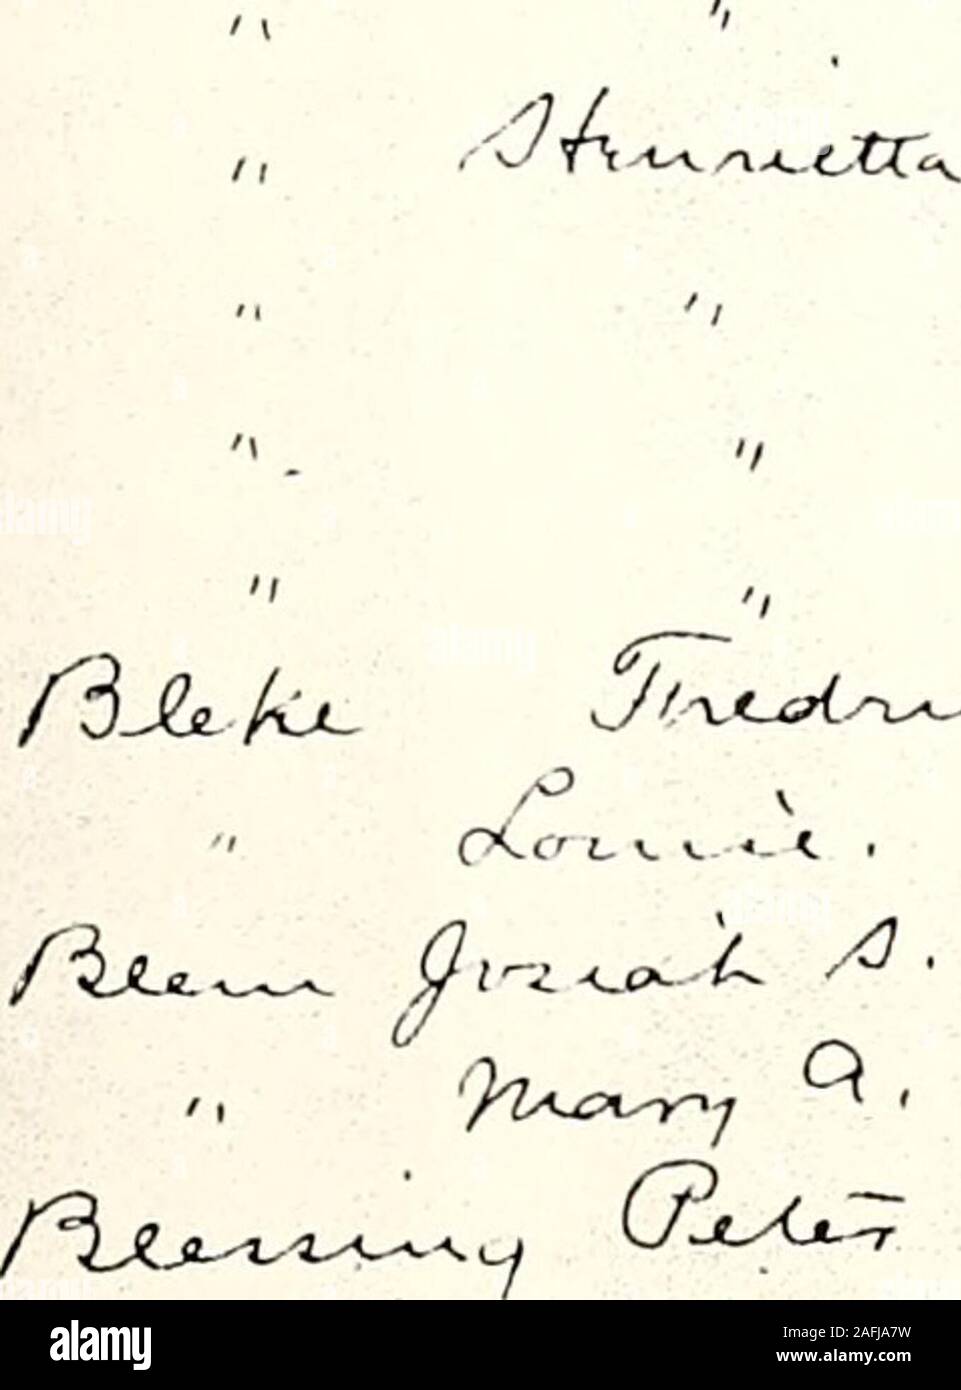 " "
" Henrietta
" "
" "
" "
Bleke Fredri
" Lonnie.
Bleem Josiah S.
" Mary A.
Blessing Peter
alamy
Image ID: 2AFJA7W
www.alamy.com